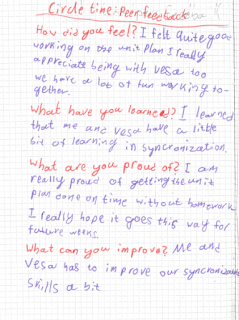 Circle time: Peer feedback
How did you feel? I felt quite good
working on the unit plan I really
appreciate being with vesa too
we have a lot of fun working to-
gether.
What have you learned? I learned
that me and vesa have a little
bit of learning in syncronization.
What are you proud of? I am
really proud of getting the unit
plan done on time without homework
I really hope it goes this way for
future weeks
What can you improve? Me and
Vesa has to improve our syncronization
skills a bit